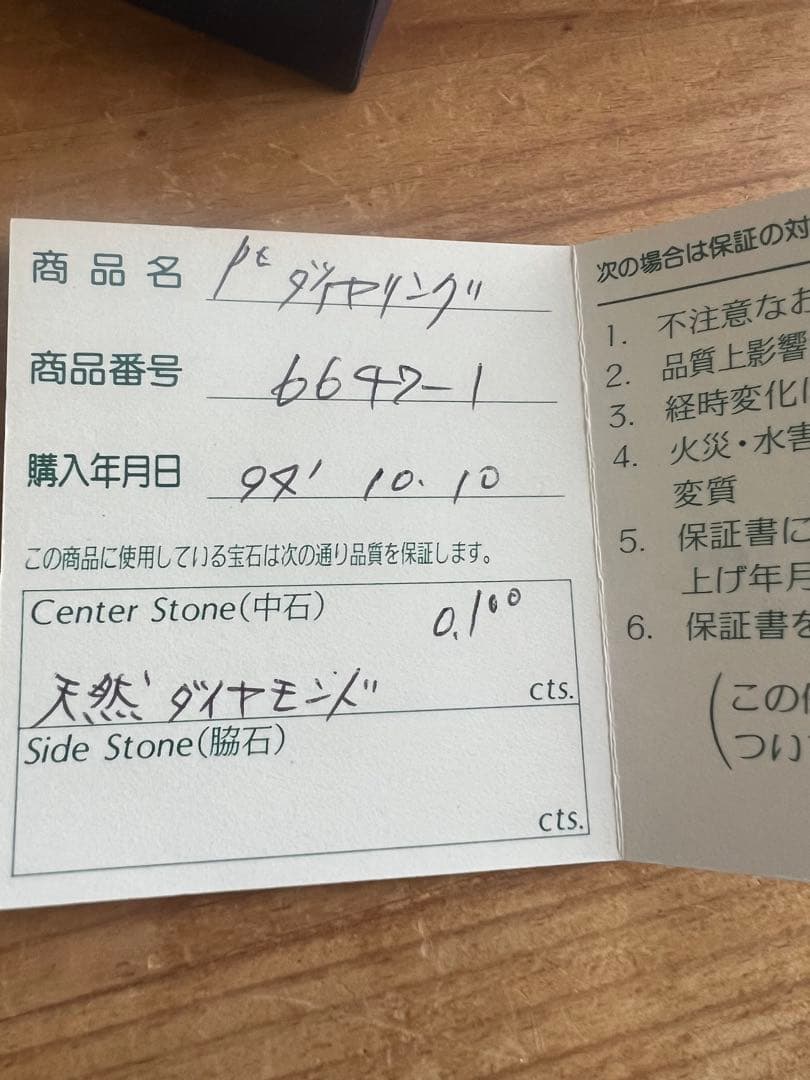 商品名 Pt ダイヤリング
商品番号 6647-1
購入年月日 94' 10.10
この商品に使用している宝石は次の通り品質を保証します。
Center Stone(中石) 0.100
天然 ダイヤモンド cts.
Side Stone(脇石)
cts.
次の場合は保証の対
1. 不注意なお
2. 品質上影響
3. 経時変化に
4. 火災・水害
変質
5. 保証書に
上げ年月
6. 保証書を
(この
つい